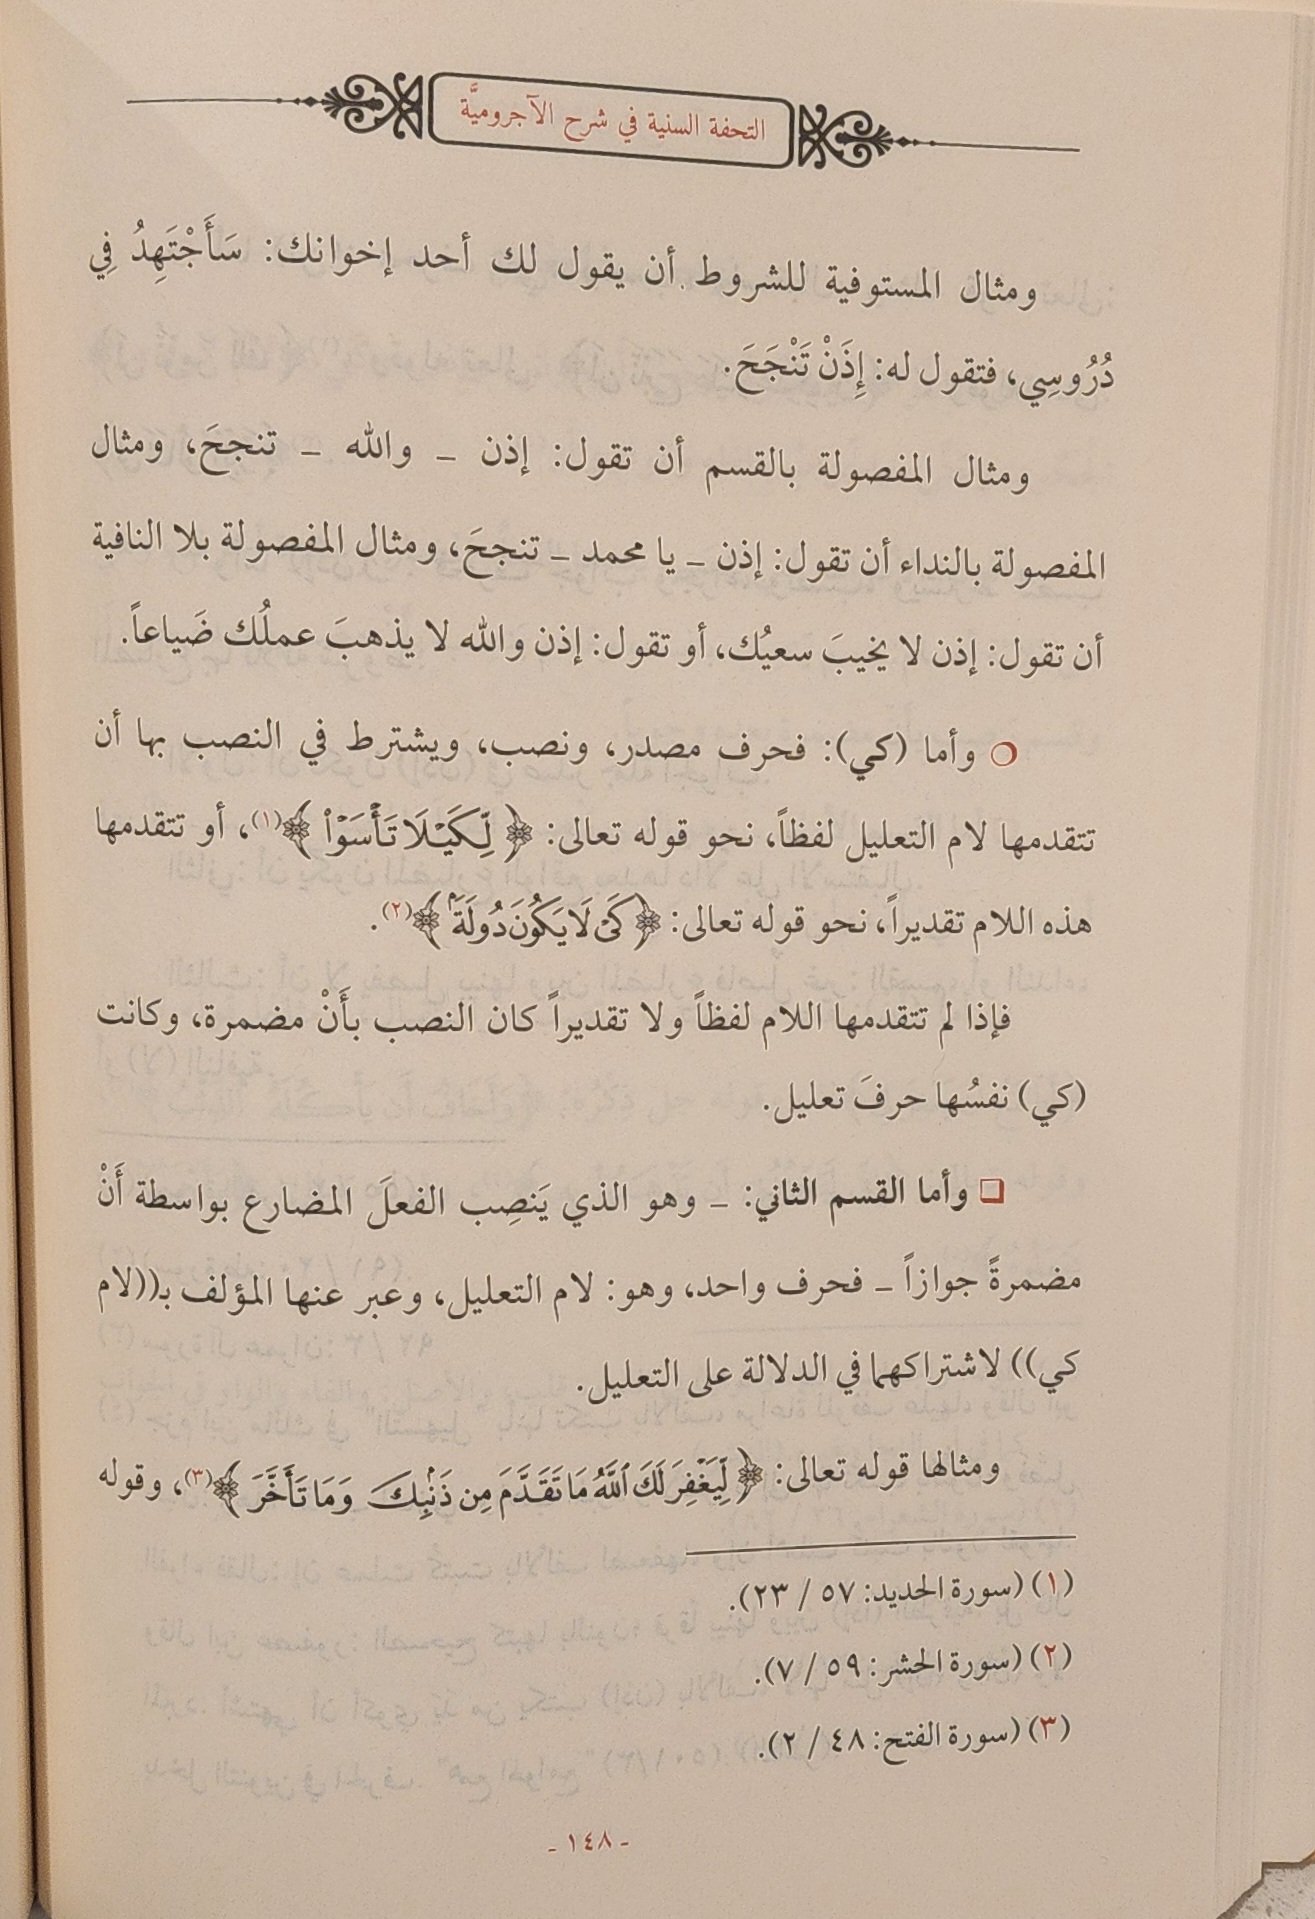 التحفة السنية في شرح الآجروميَّة
ومثال المستوفية للشروط أن يقول لك أحد إخوانك: سَأَجْتَهِدُ فِي
دُرُوسِي، فتقول له: إِذَنْ تَنْجَحَ.
ومثال المفصولة بالقسم أن تقول: إذن _ والله _ تنجحَ، ومثال
المفصولة بالنداء أن تقول: إذن _ يا محمد _ تنجحَ، ومثال المفصولة بلا النافية
أن تقول: إذن لا يخيبَ سعيُك، أو تقول: إذن والله لا يذهبَ عملُك ضَياعاً.
○ وأما (كي): فحرف مصدر، ونصب، ويشترط في النصب بها أن
تتقدمها لام التعليل لفظاً، نحو قوله تعالى: ﴿ لِّكَيْلَا تَأْسَوْا۟ ﴾(١)، أو تتقدمها
هذه اللام تقديراً، نحو قوله تعالى: ﴿ كَىْ لَا يَكُونَ دُولَةًۢ ﴾(٢).
فإذا لم تتقدمها اللام لفظاً ولا تقديراً كان النصب بأَنْ مضمرة، وكانت
(كي) نفسُها حرفَ تعليل.
❏ وأما القسم الثاني: _ وهو الذي يَنصِب الفعلَ المضارع بواسطة أَنْ
مضمرةً جوازاً _ فحرف واحد، وهو: لام التعليل، وعبر عنها المؤلف بـ((لام
كي)) لاشتراكهما في الدلالة على التعليل.
ومثالها قوله تعالى: ﴿ لِّيَغْفِرَ لَكَ ٱللَّهُ مَا تَقَدَّمَ مِن ذَنۢبِكَ وَمَا تَأَخَّرَ ﴾(٣)، وقوله
(١) (سورة الحديد: ٥٧ / ٢٣).
(٢) (سورة الحشر: ٥٩ / ٧).
(٣) (سورة الفتح: ٤٨ / ٢).
- ١٤٨ -